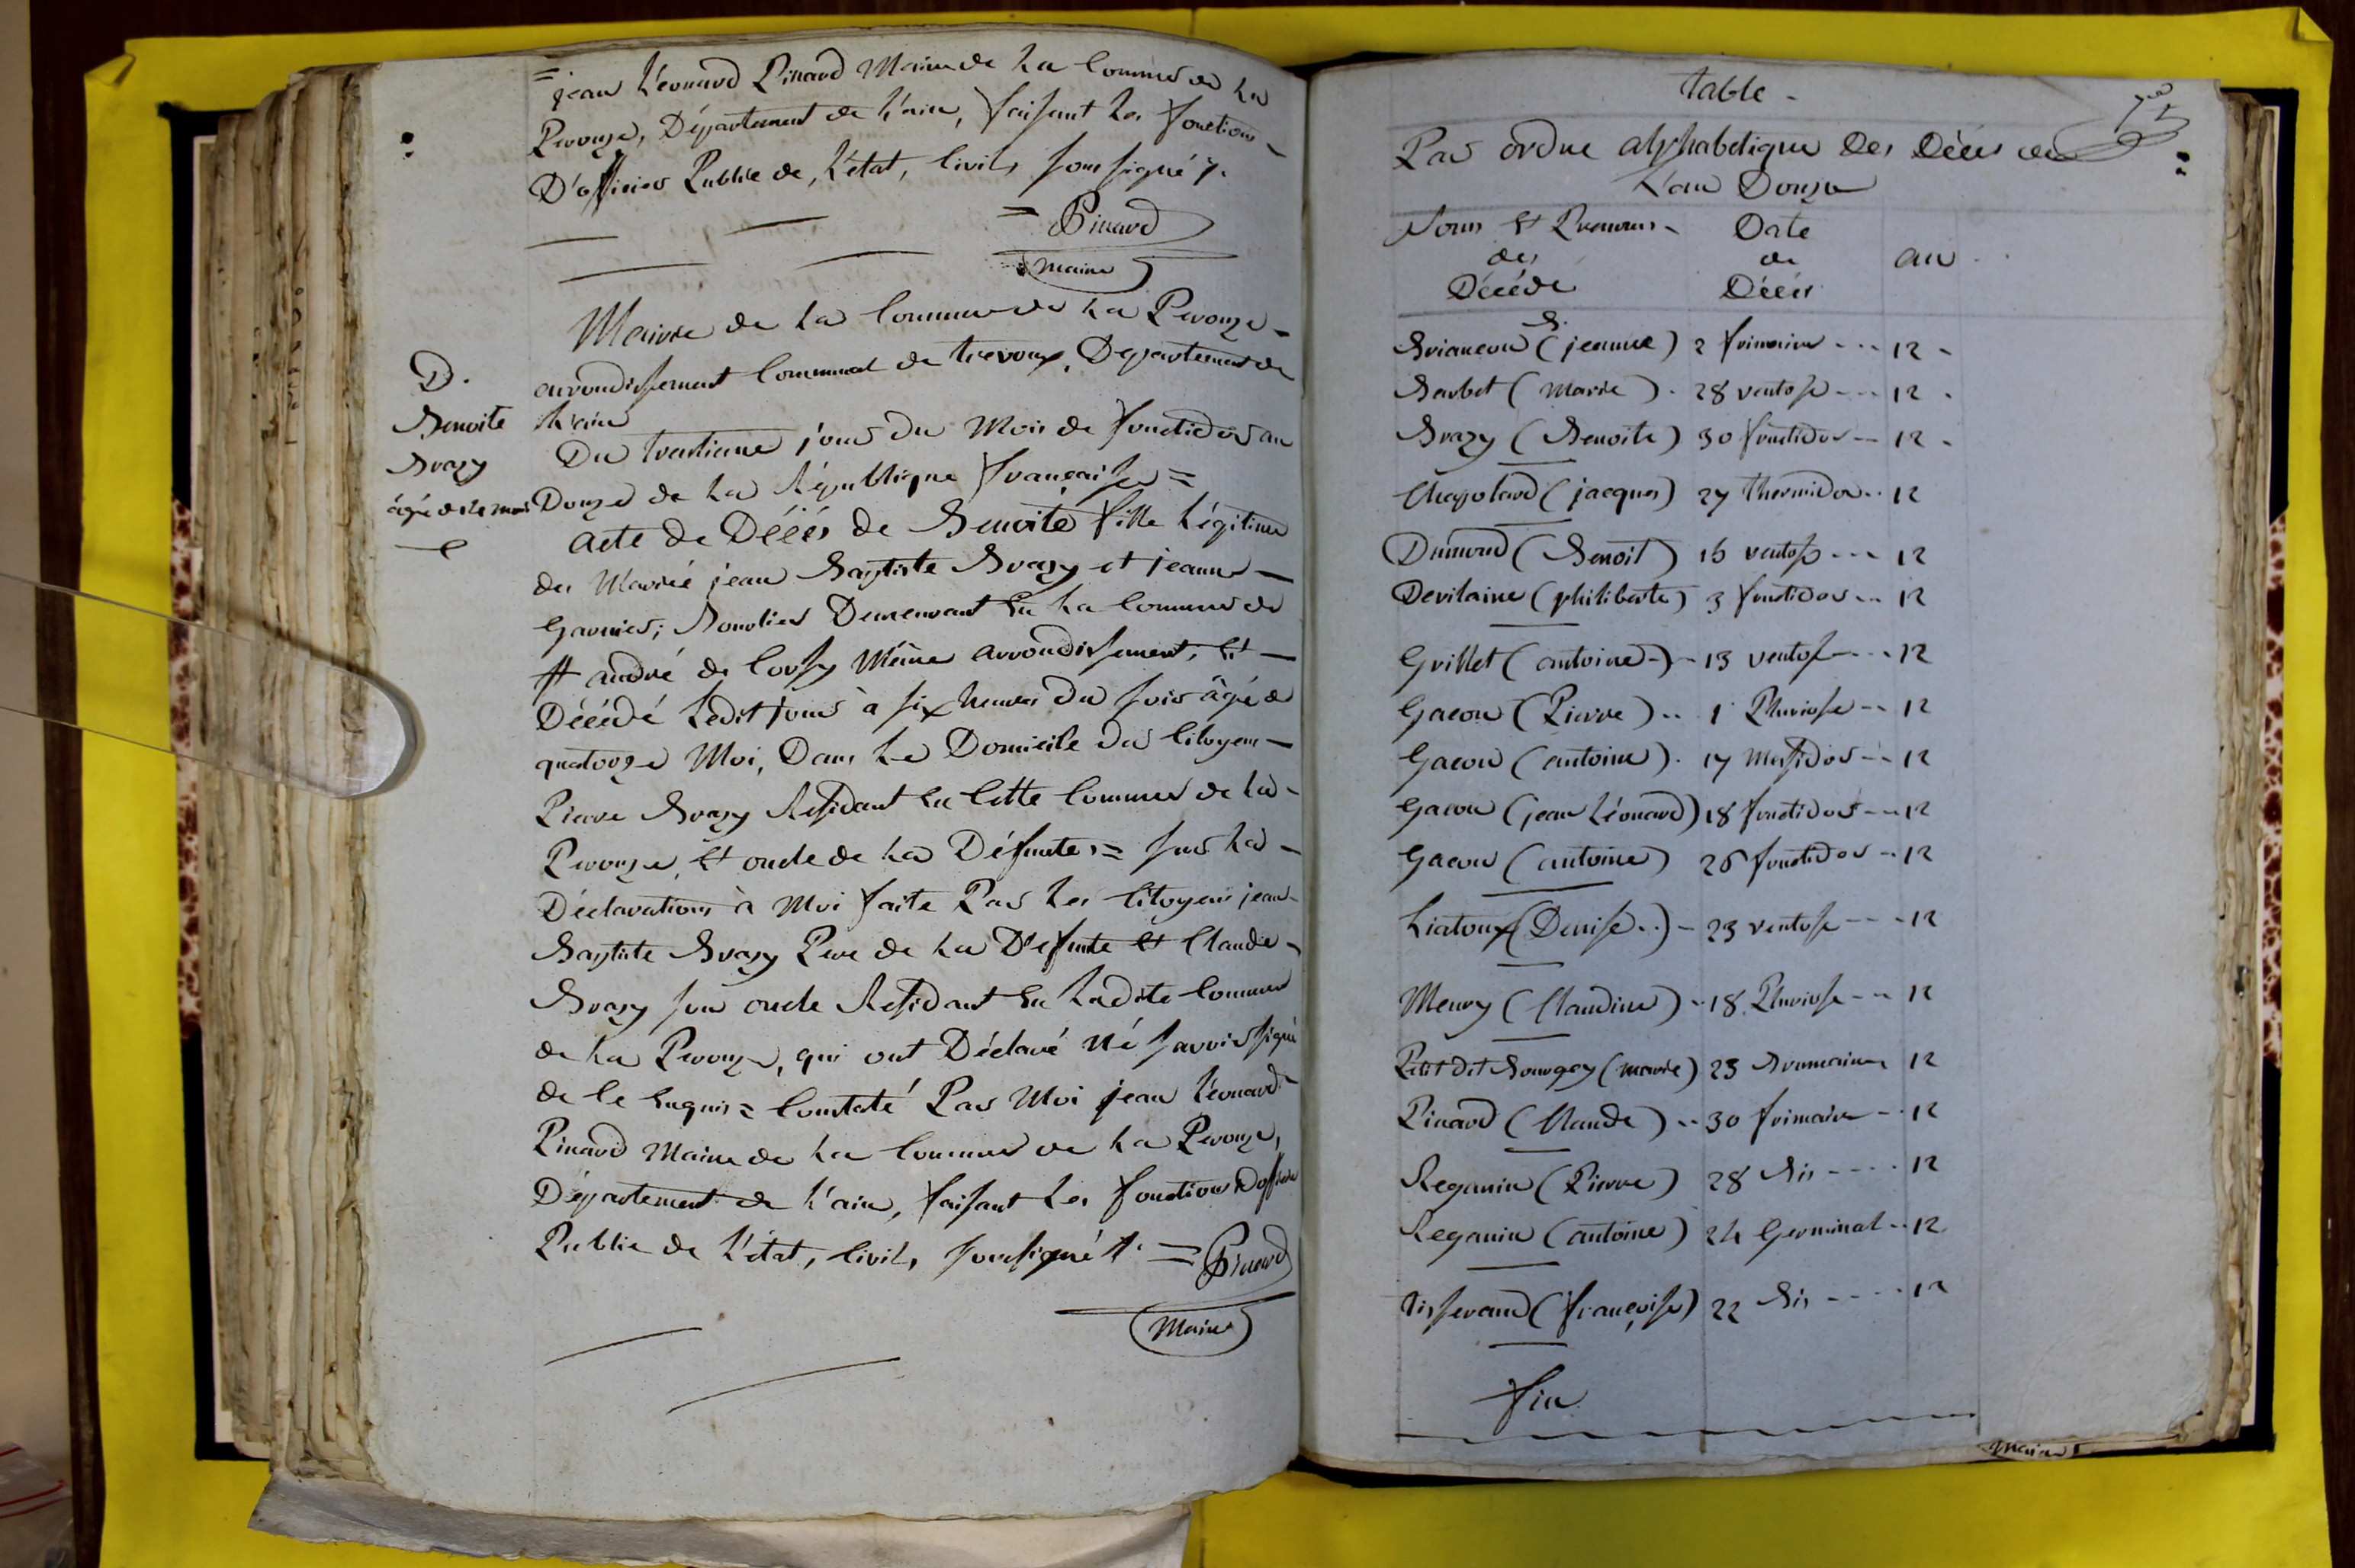 = jean Léonard Pinard Maire de La Commune de La
Perouze, Département de L'ain, faisant Les fonctions
D'officier Public de, L'état, Civil, sousigné
= Pinard
Maire
Mairie de La Commune de La Perouze =
arrondissement Communal de trevoux, Département de
L'ain
D.
Benoite
Brazy
âgé de 14 mois
Du trentieme jour du Mois de fructidor an
Douze de La République française =
acte de Décés de Benoite fille Légitime
des Mariée jean Baptiste Brazy et jeanne
Garnier; Demeurant En La Commune de
St andré de Corsy Même arrondissement, Et
Décédé Ledit jour à six heures du soir âgé de
quatorze Moi, Dans Le Domicile du Citoyen
Pierre Brazy Residant En Cette Commune de La
Perouze, Et oncle de La Défunte = sur La
Déclaration à Moi faite Par Les Citoyens jean
Baptiste Brazy Pere de La Défunte Et Claude
Brazy son oncle Residant En Ladite Commune
de La Perouze, qui ont Déclaré Né savoir signé
de Ce Enquis = Constaté Par Moi jean Léonard
Pinard Maire de La Commune de La Perouze,
Département de L'ain, faisant Les fonctions D'officier
Public de L'état, Civil, sousigné = Pinard
Maire
table -
Par ordre alphabetique Des Décés de
L'an Douze
Noms Et Prenoms Date
des de an
Décédé Décés
B.
Brianceon (jeanne) 2 frimaire --- 12
Barbet (Marie) . 28 ventose --- 12
Brazy (Benoite) 30 fructidor -- 12
Chapolard (jacques) 27 thermidor .. 12
Dumond (Benoit) 16 ventose --- 12
Devilaine (philiberte) 3 fructidor .. 12
Grillet (antoine -) - 13 ventose --- 12
Gacon (Pierre) .. 1 Pluviose -- 12
Gacon (antoine) . 17 Messidor -- 12
Gacon (jean Léonard) 18 fructidor -- 12
Gacon (antoine) 26 fructidor - 12
Liatoux (Denise ..) - 23 ventose --- 12
Meury (Claudine) -- 18 Pluviose -- 12
Petit Dit Bourgey (marie) 23 Brumaire 12
Pinard (Claude) -- 30 frimaire - 12
Reganin (Pierre) 28 Dis ---- 12
Reganin (antoine) 24 Germinal -- 12
tisserand (françoise) 22 Dis ---- 12
fin
Maire